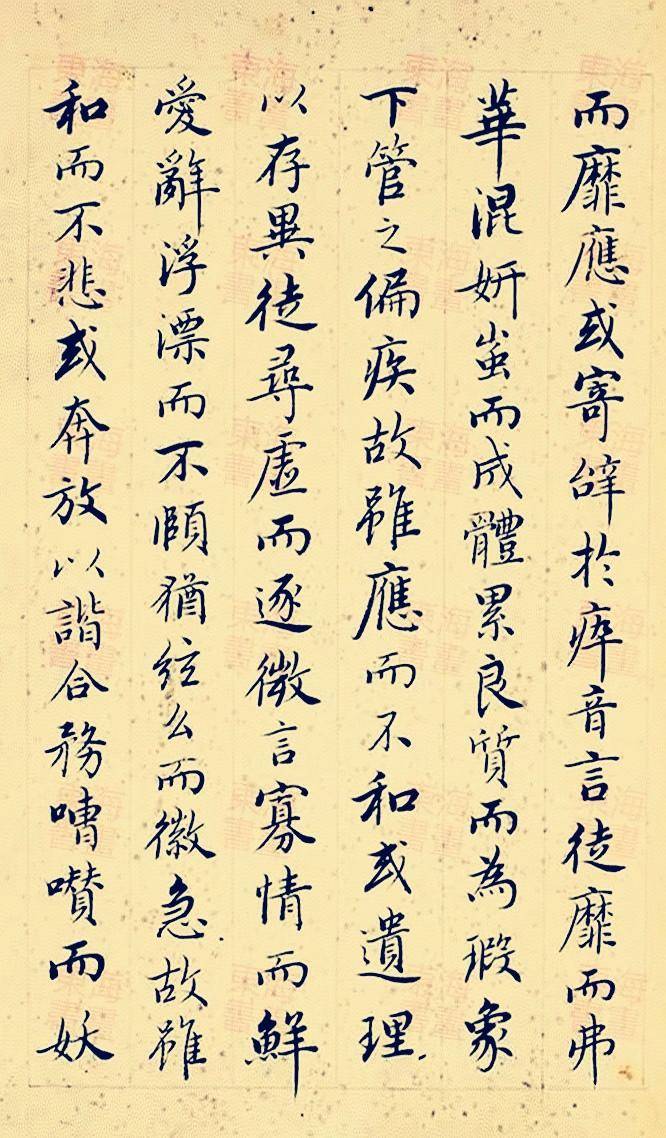 而靡應或寄辭於瘁音言徒靡而弗
華混妍蚩而成體累良質而為瑕象
下管之偏疾故雖應而不和或遺理
以存異徒尋虛而逐微言寡情而鮮
愛辭浮漂而不歸猶絃么而徽急故雖
和而不悲或奔放以諧合務嘈囋而妖